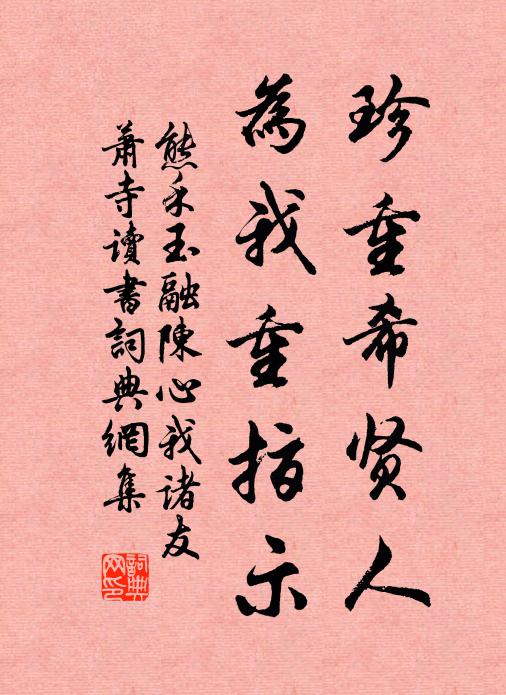 珍重希贤人
為我重指示
熊禾玉融陳心我諸友
蕭寺讀書詞典網集
詞典網印